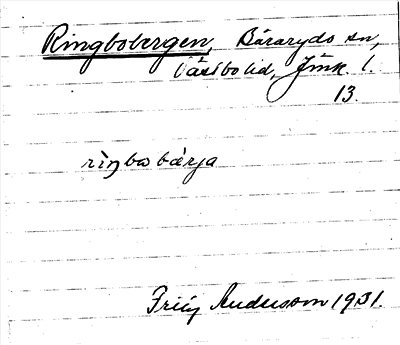 Ringbobergen, Båraryds sn,
Västbo hd, Jönk. l.
13.
ringbobärja
Fritz Andersson 1931.